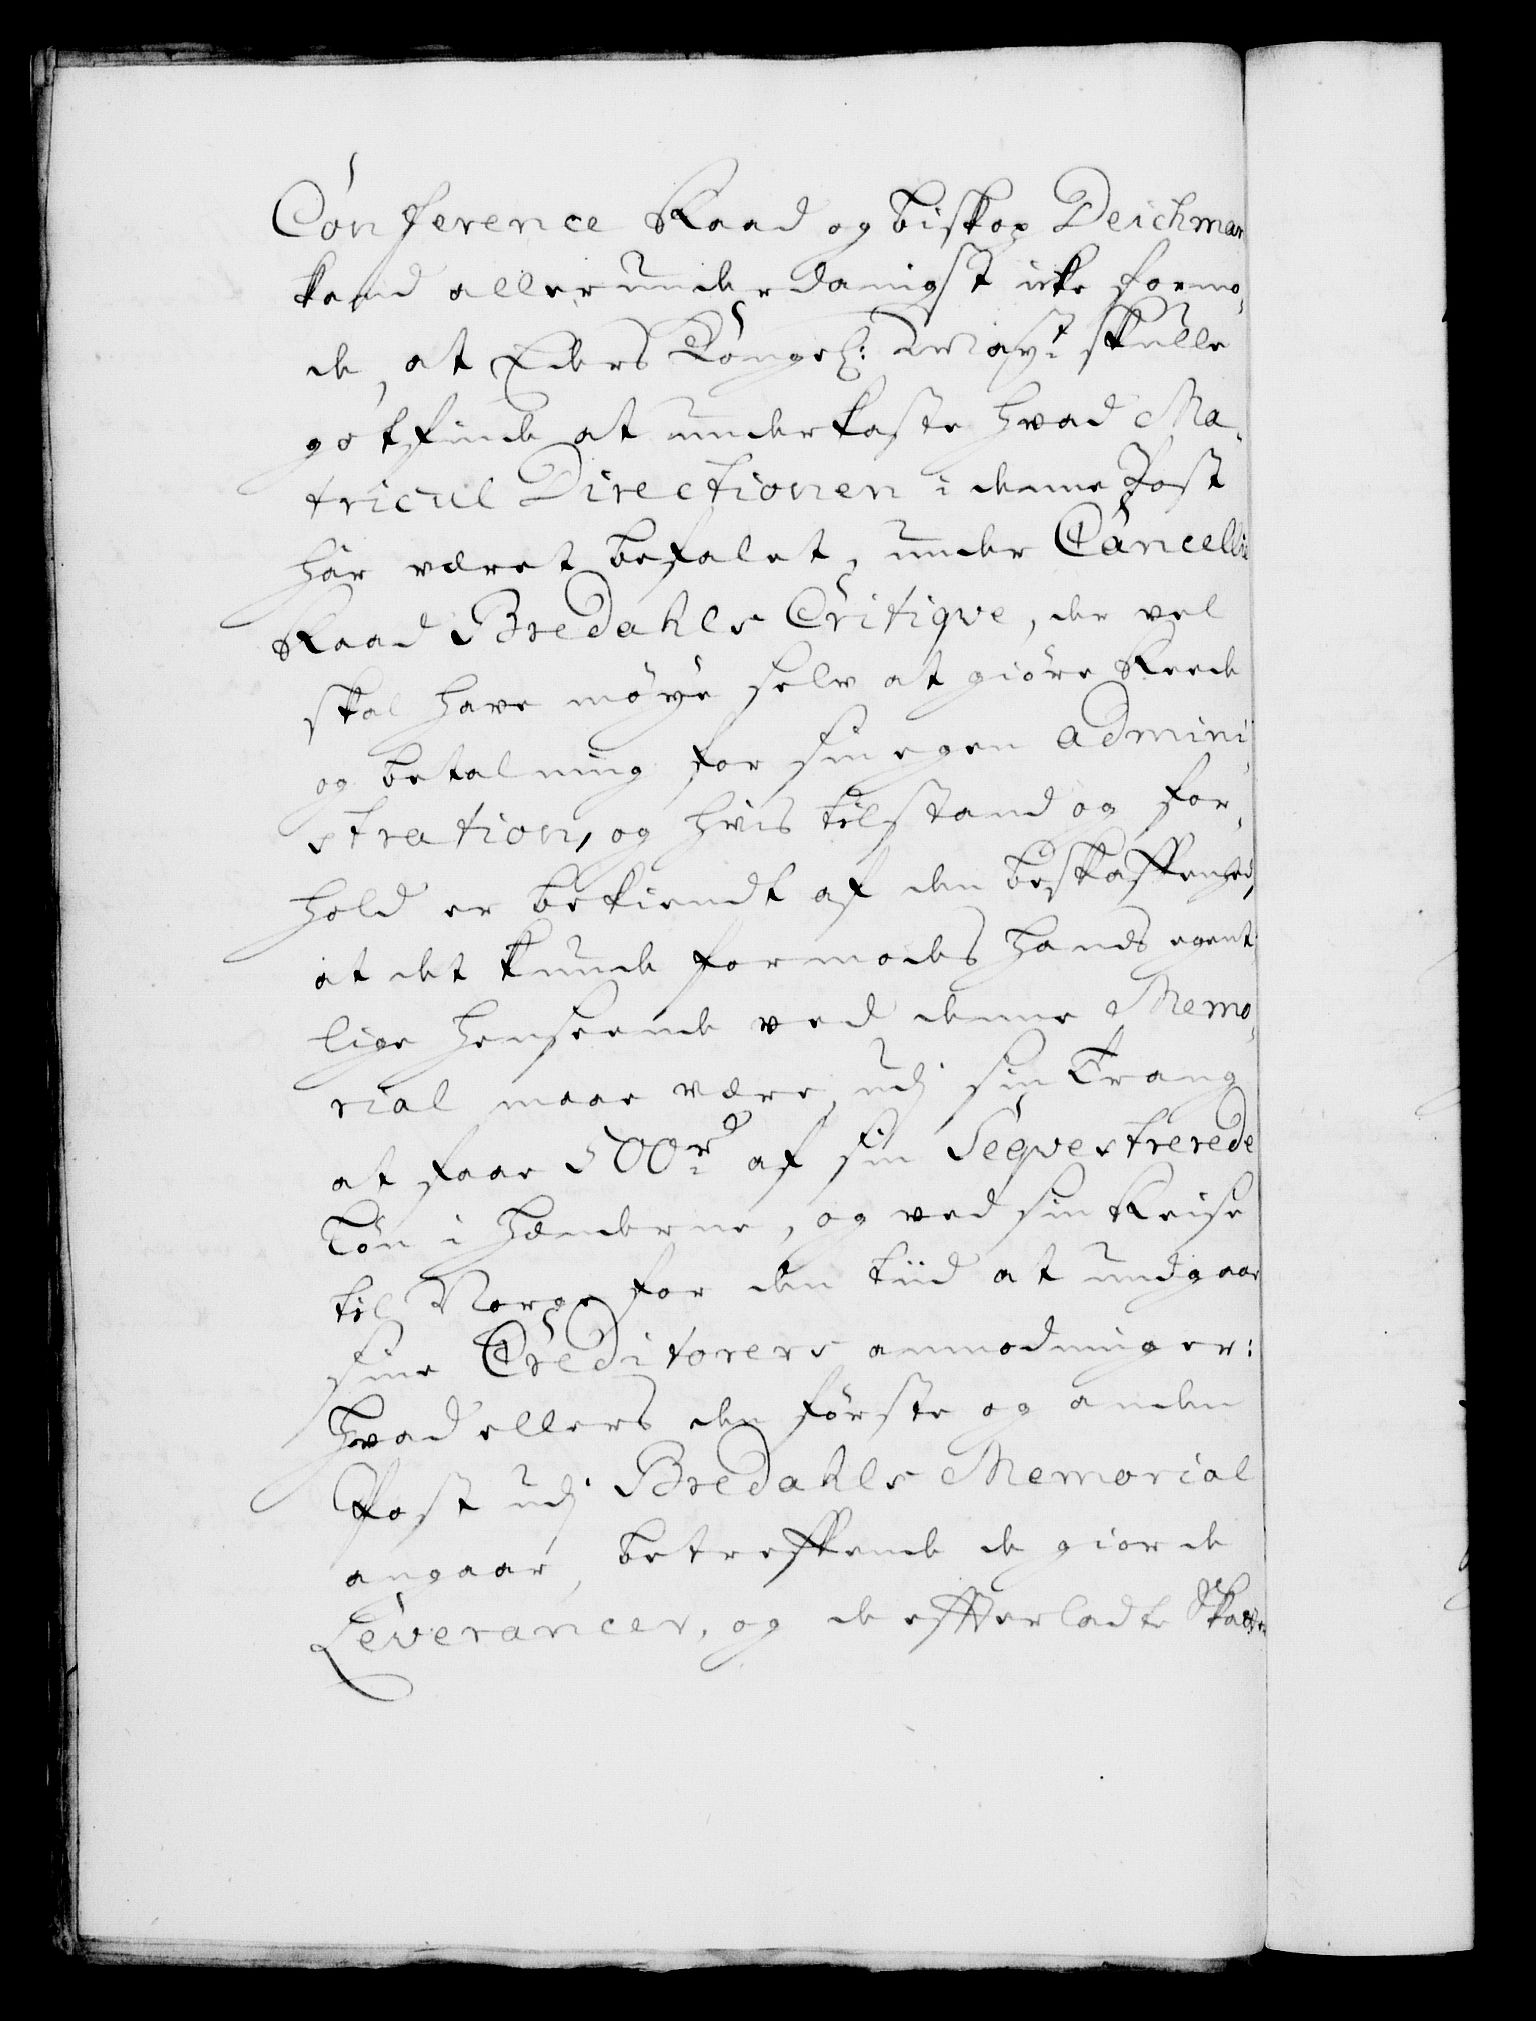 Conference Raad og biskop Deichman
kand allerunderdanigst icke formo,
de, at Eders Kongel: Mayt skulle
gotfinde at underkaste hvad Ma,
tricul Directionen i denne Post
har været befalet, under Cancellie
Raad Bredahls Critiqve, der vel
skal have møye selv at giøre Reede
og betalning for sin egen admini,
stration, og hvis tilstand og for,
hold er bekiendt af den beskaffenhed,
at det kunde formodes hands egent,
lige henseende ved denne Memo,
rial maae være, udj sin Trang
at faae 500 rd af sin Seqvestrerede
Løn i hænderne, og ved sin Reise
til Norge for den tiid at undgaae
sine Creditorers anmodninger:
hvad ellers den første og anden
Post udj Bredahls Memorial
angaar, betreffende de giorde
Leverancer, og de efterladte Skatter